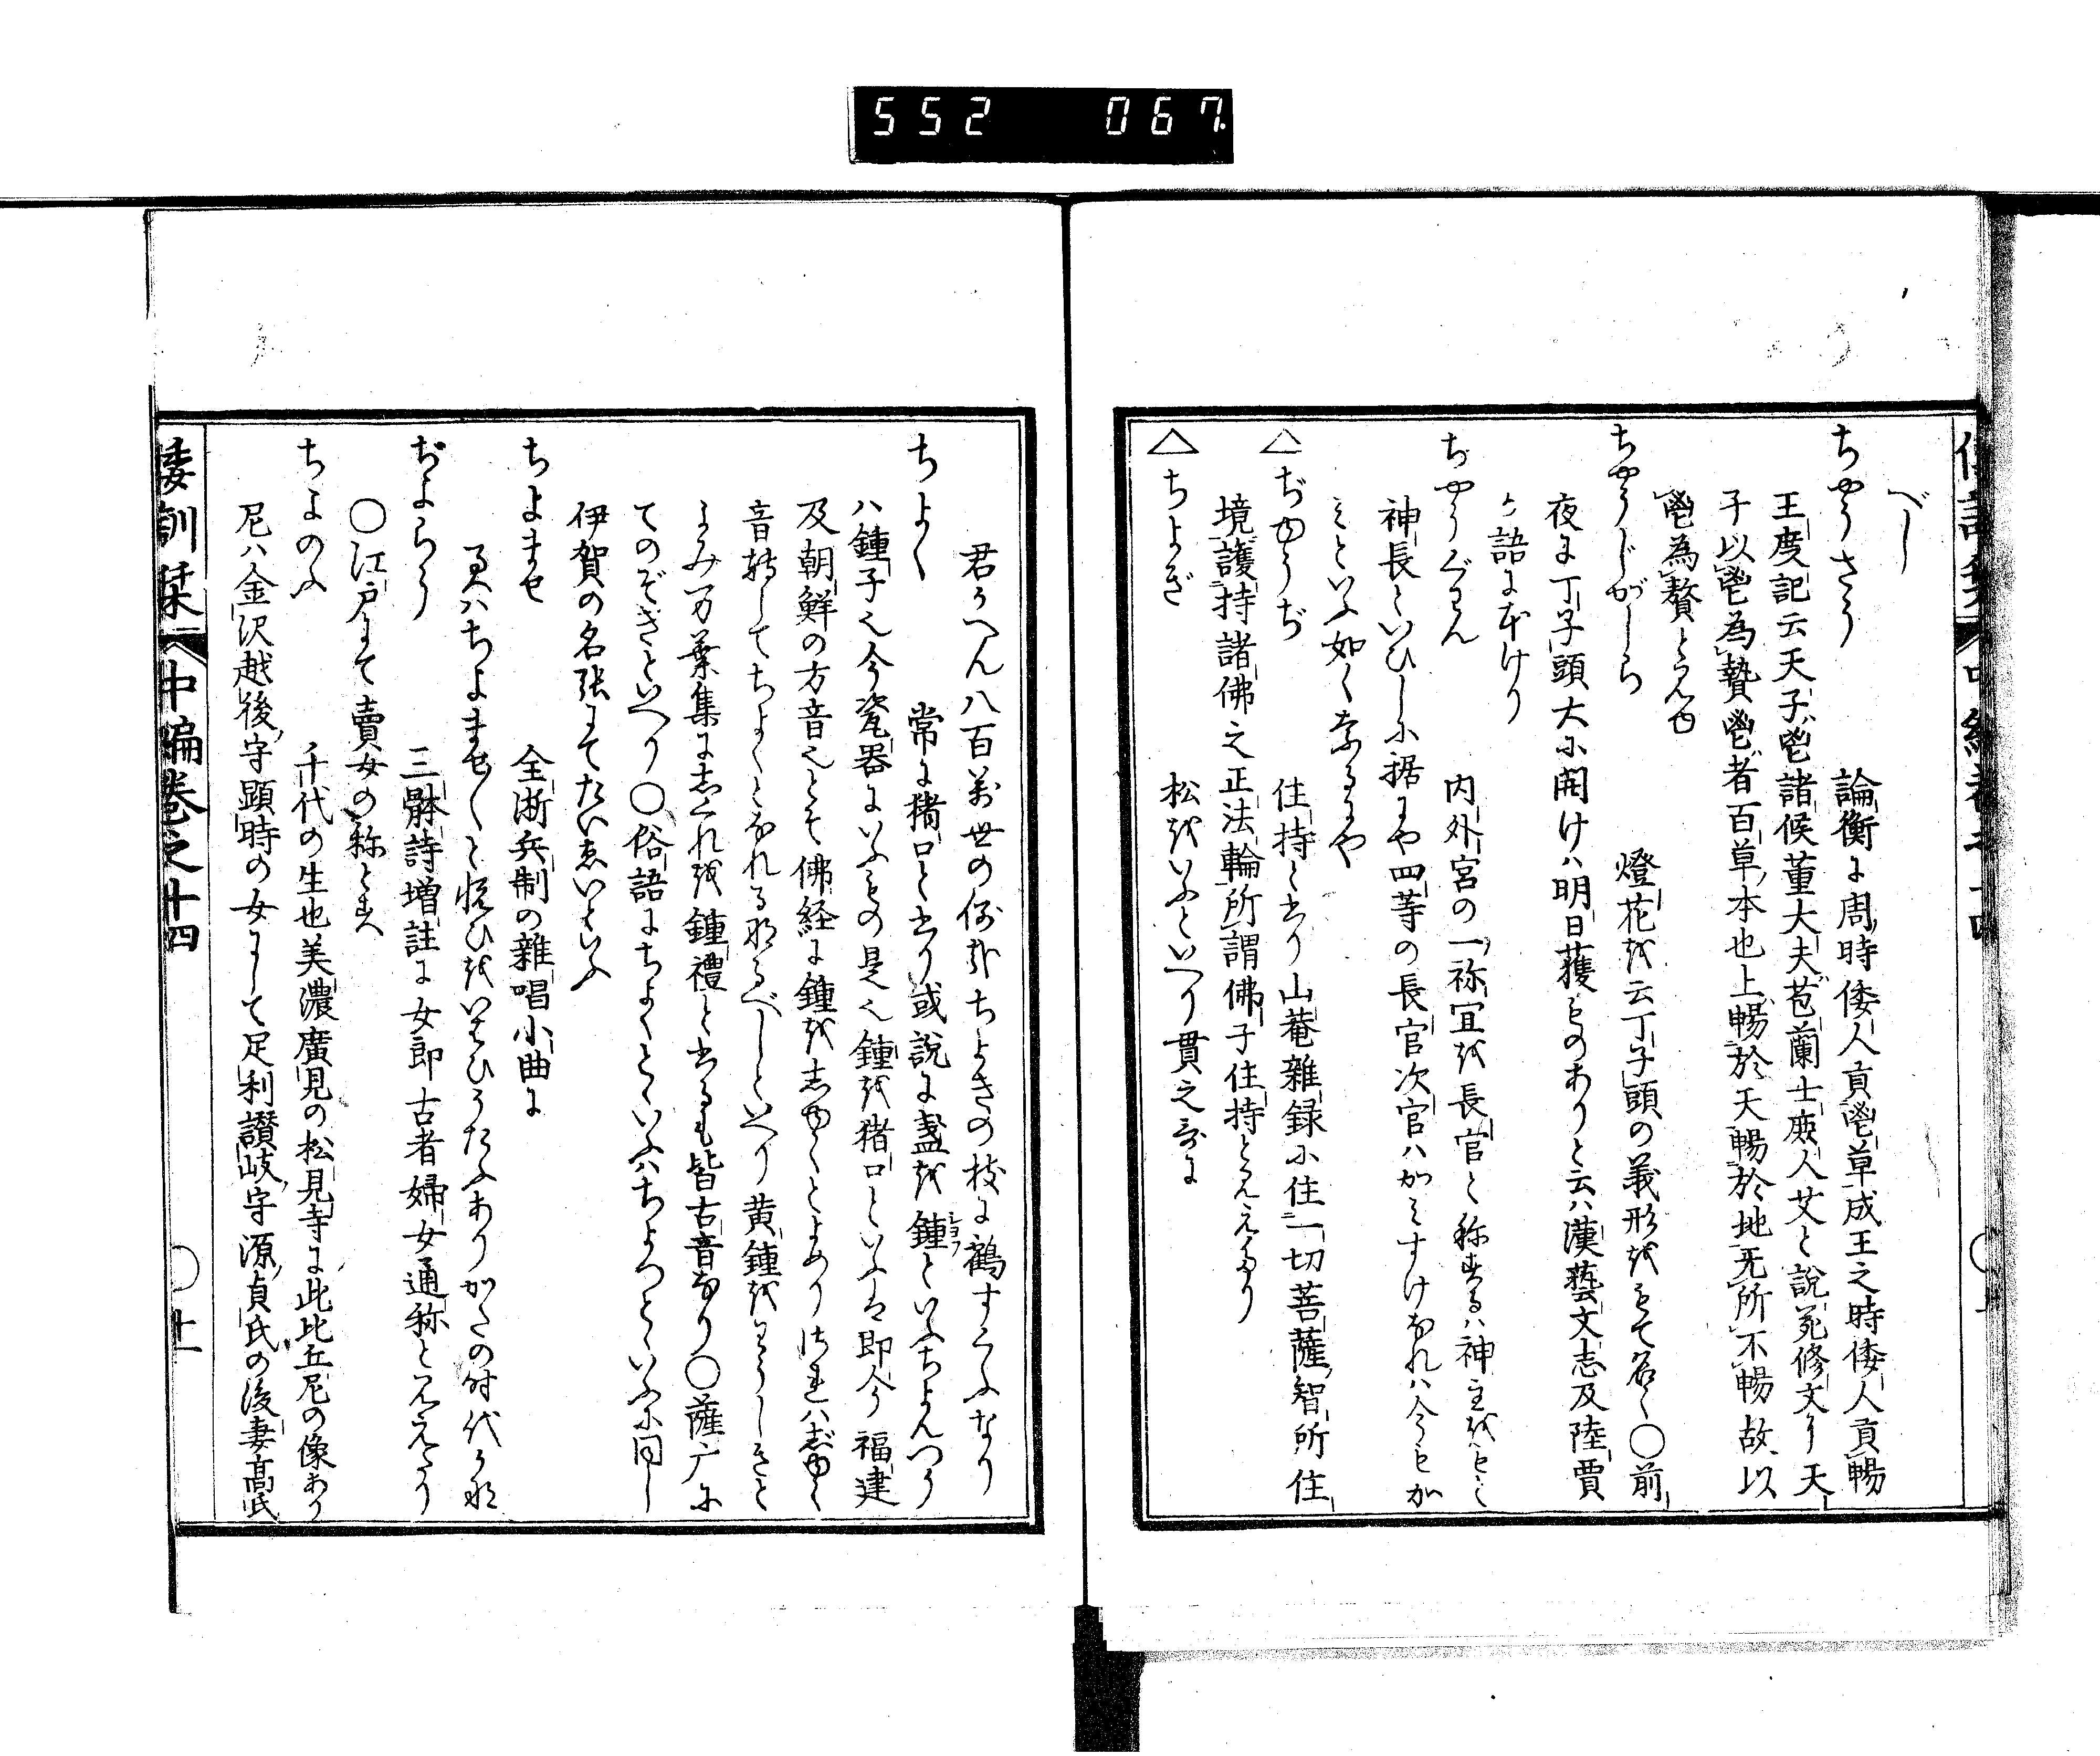 552 067
べし
ちやうさう 論衡に周時倭人貢鬯草成王之時倭人貢暢
王度記云天子鬯諸候薫大夫苞蘭士庶人艾と說苑修文に天
子以鬯為贄鬯者百草本也上暢於天暢於地无所不暢故以
鬯為贅とみゆ
ちやうじがしら 燈花を云丁子頭の義形をもて名く〇前
夜に丁子頭大に開けハ明日獲ものありと云ハ漢藝文志及陸賈
か語に本けり
ちやうぐわん 内外宮の一祢宜を長官と称するハ神主をもと
神長といひしに据にや四等の長官次官ハかみすけなれハ今もか
みといふ如くなるにや
△ぢゆうぢ 住持と書り山菴雑録に住一切菩薩智所住
境護持諸佛之正法輪所謂佛子住持とみえたり
△ちよぎ 松をいふといへり貫之哥に
君かへん八百萬世の例ぞちよきの枝に鶴すくふなり
ちよく 常に猪口と書り或說に盞を鍾といふちよんつう
ハ鍾子也今瓷器にいふもの是也鍾を猪口といふは即今福建
及朝鮮の方音也とそ佛経に鍾をしゆくとよめりされハしゆく
音転してちよくとなれるなるべしといへり黄鍾をわうしきと
よみ万葉集にしくれを鍾禮と書るも皆古音なり〇薩广に
てのぞきといへり〇俗語にちよくといふハちよつといふに同し
伊賀の名張にてたいまいといふ
ちよませ 全浙兵制の雜唱小曲に
るハちよませくと悦ひをいはひうたふありかたの時代かな
ぢよらう 三體詩增註に女郎古者婦女通称とみえたり
〇江戸にて賣女の称とす
ちよのふ 千代の生也美濃廣見の松見寺に此比丘尼の像あり
尼ハ金沢越後守顕時の女にして足利讃岐守源貞氏の後妻髙氏
倭訓栞 中編巻之十四 〇十一